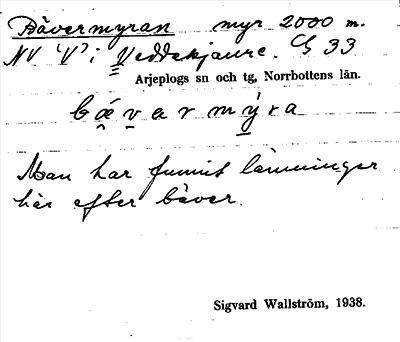 Bävermyran myr 2000 m.
NV "V" i Veddekjaure. G 33
Arjeplogs sn och tg, Norrbottens län.
bǽvarmýra
Man har funnit lämningar
här efter bäver.
Sigvard Wallström, 1938.